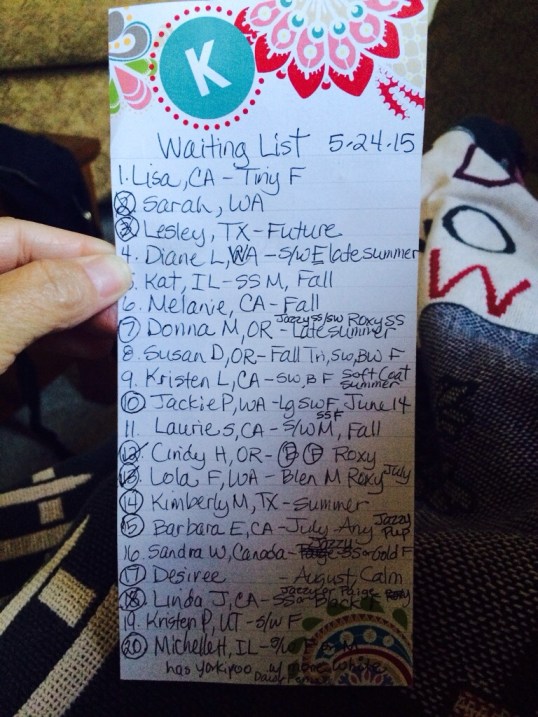 K
Waiting List 5-24-15
1. Lisa, CA - Tiny F
2. Sarah, WA
3. Lesley, TX - Future
4. Diane L, WA - S/W F late summer
5. Kat, IL - SS M, Fall
6. Melanie, CA - Fall
Jazzy SS/SW Roxy SS
7. Donna M, OR - Late Summer
8. Susan D, OR - Fall Tri, SW, BW F
9. Kristen L, CA - SW, B F Soft Coat Summer
10. Jackie P, WA - Lg SW F, June 14
SS F
11. Laurie S, CA - S/W M, Fall
12. Cindy H, OR - F Roxy
13. Lola F, WA - Blen M Roxy July
14. Kimberly M, TX - Summer
15. Barbara E, CA - July - Any Jazzy Pup
Jazzy
16. Sandra W, Canada - SS or Gold F
17. Desiree - August, Calm
Jazzy or Paige Roxy
18. Linda J, CA - SS or Black
19. Kristen P, UT - S/W F
20. Michelle H, IL - F M
has yorkipoo w more white
WOD